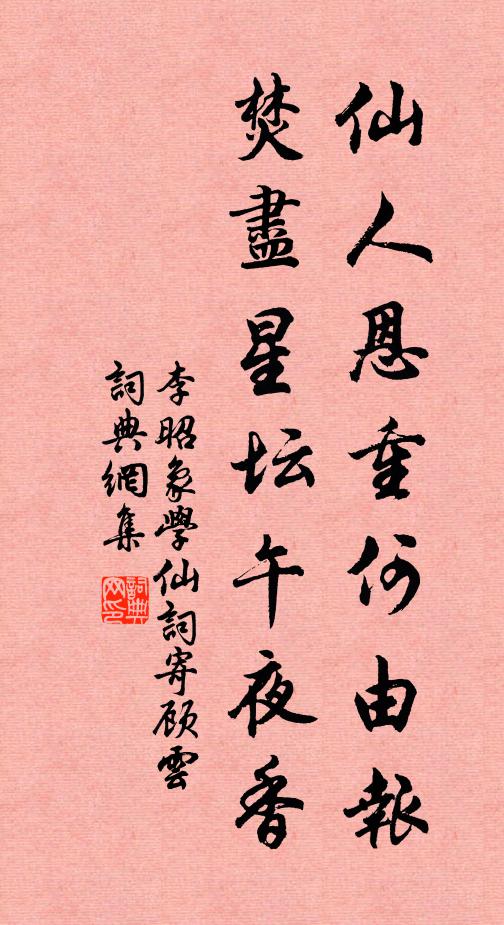 仙人恩重何由報
焚盡星坛午夜香
李昭象學仙詞寄顾雲
詞典網集
詞典网印